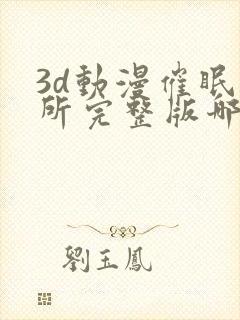 3d動漫催眠
所完整版哪
劉玉鳳